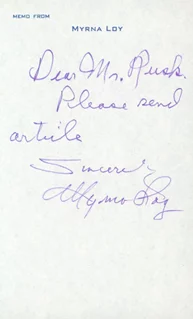 MEMO FROM
MYRNA LOY
Dear Mr. Rusk.
Please send
article
Sincerely
Myrna Loy